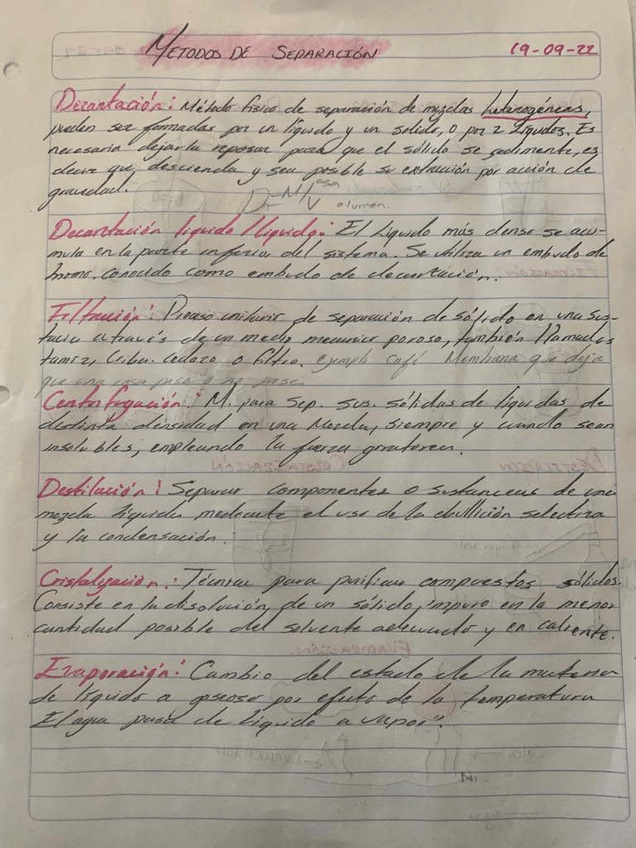 METODOS DE SEPARACIÓN 19-09-22
Decantación: Método físico de separación de mezclas heterogéneas,
pueden ser formadas por un líquido y un sólido, o por 2 líquidos. Es
necesario dejarla reposar para que el sólido se sedimente, es
decir que, descienda y sea posible su extracción por acción de
gravedad.
D=M/V asa olumen.
Decantación líquido/líquido: El Líquido más denso se acu-
mula en la parte inferior del sistema. Se utiliza un embudo de
bromo. Conocido como embudo de decantación.
Filtración: Proceso unitario de separación de sólido en una sus-
tacia a través de un medio mecanico poroso, también llamados
tamiz, Criba. Cedazo o Filtro. ejemplo café Membrana que deja
que una cosa pase o no pase.
Centrifugación: M. para Sep. sus. sólidas de líquidas de
distinta densidad en una Mezcla, siempre y cuando sean
insolubles, empleando la fuerza giratorea.
Destilación: Separar componentes o sustancias de una
mezcla líquida mediante el uso de la ebullición selectiva
y la condensación.
Cristalización: Técnica para purificar compuestos sólidos.
Consiste en la disolución de un sólido, impuro en la menor
cantidad posible del solvente adecuado y en caliente.
Evaporación: Cambio del estado de la materia
de líquido a gaseoso por efecto de la temperatura
El agua pasa de líquido a vapor".